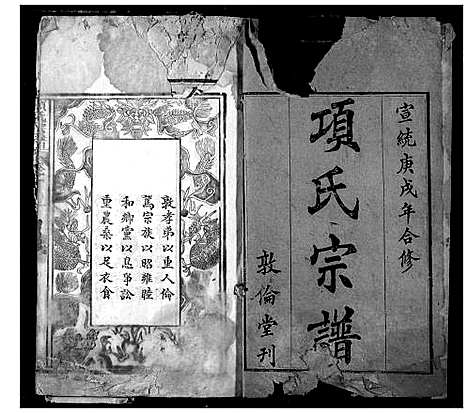 宣統庚戌年合修
項氏宗譜
敦倫堂刊
敦孝弟以重人倫
篤宗族以昭雍睦
和鄉黨以息爭訟
重農桑以足衣食